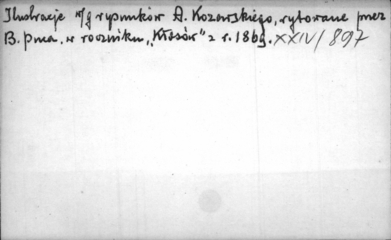 Ilustracje w/g rysunków A. Kozarskiego, rytowane przez
B. Puca, w roczniku „Kłosów” z r. 1869. XXIV/897